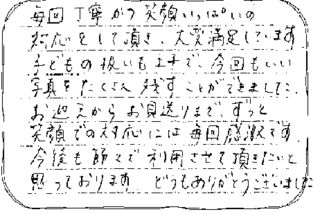 毎回丁寧かつ笑顔いっぱいの
対応をして頂き、大変満足しています
子どもの扱いも上手で、今回もいい
写真をたくさん残すことができました。
お迎えからお見送りまで、ずっと
笑顔での対応には毎回感激です
今後も節々で利用させて頂きたいと
思っております。どうもありがとうございました